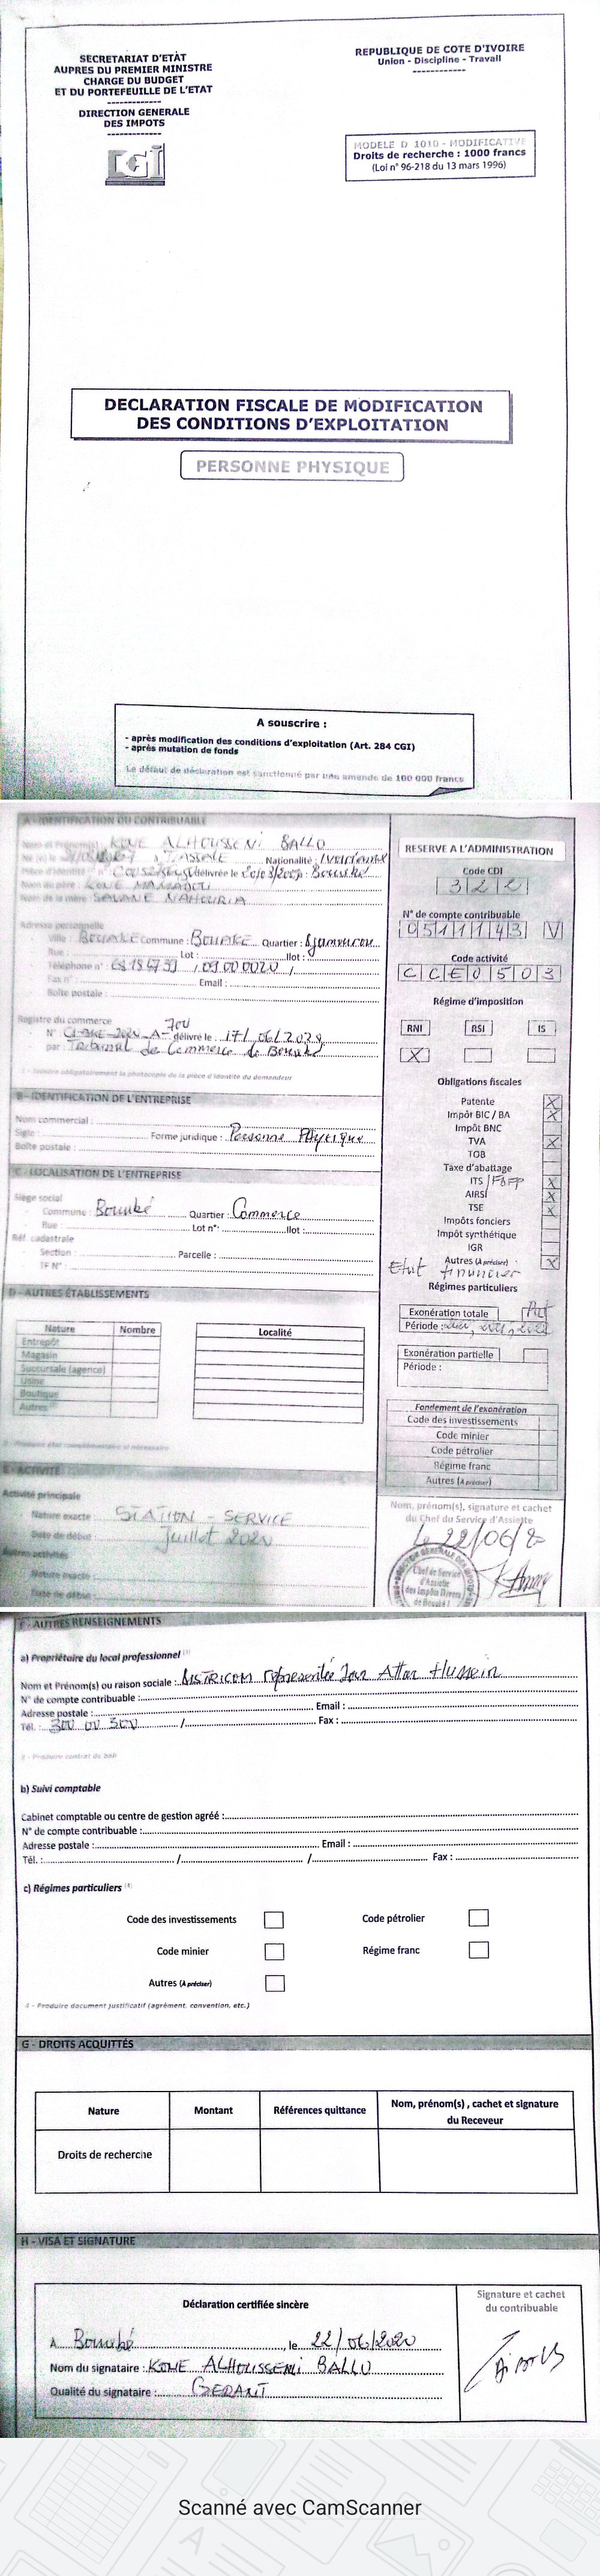 SECRETARIAT D'ETÀT
AUPRES DU PREMIER MINISTRE
CHARGE DU BUDGET
ET DU PORTEFEUILLE DE L'ETAT
DIRECTION GENERALE
DES IMPOTS
DGI
REPUBLIQUE DE COTE D'IVOIRE
Union - Discipline - Travail
MODELE D 1010 - MODIFICATIVE
Droits de recherche : 1000 francs
(Loi n° 96-218 du 13 mars 1996)
DECLARATION FISCALE DE MODIFICATION
DES CONDITIONS D'EXPLOITATION
PERSONNE PHYSIQUE
A souscrire :
- après modification des conditions d'exploitation (Art. 284 CGI)
- après mutation de fonds
Le défaut de déclaration est sanctionné par une amende de 100 000 francs
A - IDENTIFICATION DU CONTRIBUABLE
Nom et Prénom(s) : KONE ALHOUSSENI BALLO
Né (e) le à Nationalité :
Pièce d'identité n° délivrée le
Nom du père : KONE MAMADOU
Nom de la mère SAVANE NAHOURIA
Adresse personnelle
Ville : BOUAKE Commune : BOUAKE Quartier :
Rue : Lot : Ilot :
Téléphone n° : / 09 00 00 20 /
Fax n° : Email :
Boîte postale :
Registre du commerce
N° délivré le : 17/06/2020
par : Tribunal de Commerce de Bouaké
1 - Joindre obligatoirement la photocopie de la pièce d'identité du demandeur
B - IDENTIFICATION DE L'ENTREPRISE
Nom commercial :
Sigle : Forme juridique : Personne Physique
Boîte postale :
C - LOCALISATION DE L'ENTREPRISE
Siège social
Commune : Bouaké Quartier : Commerce
Rue : Lot n° : Ilot :
Réf. cadastrale
Section : Parcelle :
TF N° :
D - AUTRES ÉTABLISSEMENTS
Nature Nombre Localité
Entrepôt
Magasin
Succursale (agence)
Usine
Boutique
Autres
E - ACTIVITÉ
Activité principale
Nature exacte : STATION - SERVICE
Date de début : Juillet 2020
Autres activités
Nature exacte :
Date de début :
RESERVE A L'ADMINISTRATION
Code CDI
322
N° de compte contribuable
0511143 V
Code activité
CCE0503
Régime d'imposition
RNI RSI IS
X
Obligations fiscales
Patente X
Impôt BIC / BA X
Impôt BNC
TVA X
TOB
Taxe d'abattage
ITS / FDFP X
AIRSI X
TSE X
Impôts fonciers
Impôt synthétique
IGR
Autres (A préciser) X
Etat financier
Régimes particuliers
Exonération totale
Période :
Exonération partielle
Période :
Fondement de l'exonération
Code des investissements
Code minier
Code pétrolier
Régime franc
Autres (A préciser)
Nom, prénom(s), signature et cachet
du Chef du Service d'Assiette
Chef de Service
d'Assiette
des Impôts Divers
de Bouaké I
F - AUTRES RENSEIGNEMENTS
a) Propriétaire du local professionnel
Nom et Prénom(s) ou raison sociale : DISTRICOM représentée par Attar Hussein
N° de compte contribuable :
Adresse postale : Email :
Tél. : / Fax :
3 - Produire contrat de bail
b) Suivi comptable
Cabinet comptable ou centre de gestion agréé :
N° de compte contribuable :
Adresse postale : Email :
Tél. : / / Fax :
c) Régimes particuliers (4)
Code des investissements Code pétrolier
Code minier Régime franc
Autres (A préciser)
4 - Produire document justificatif (agrément, convention, etc.)
G - DROITS ACQUITTÉS
Nature Montant Références quittance Nom, prénom(s) , cachet et signature du Receveur
Droits de recherche
H - VISA ET SIGNATURE
Déclaration certifiée sincère
Signature et cachet
du contribuable
A Bouaké , le 22/06/2020
Nom du signataire : KONE ALHOUSSENI BALLO
Qualité du signataire : GERANT
Scanné avec CamScanner